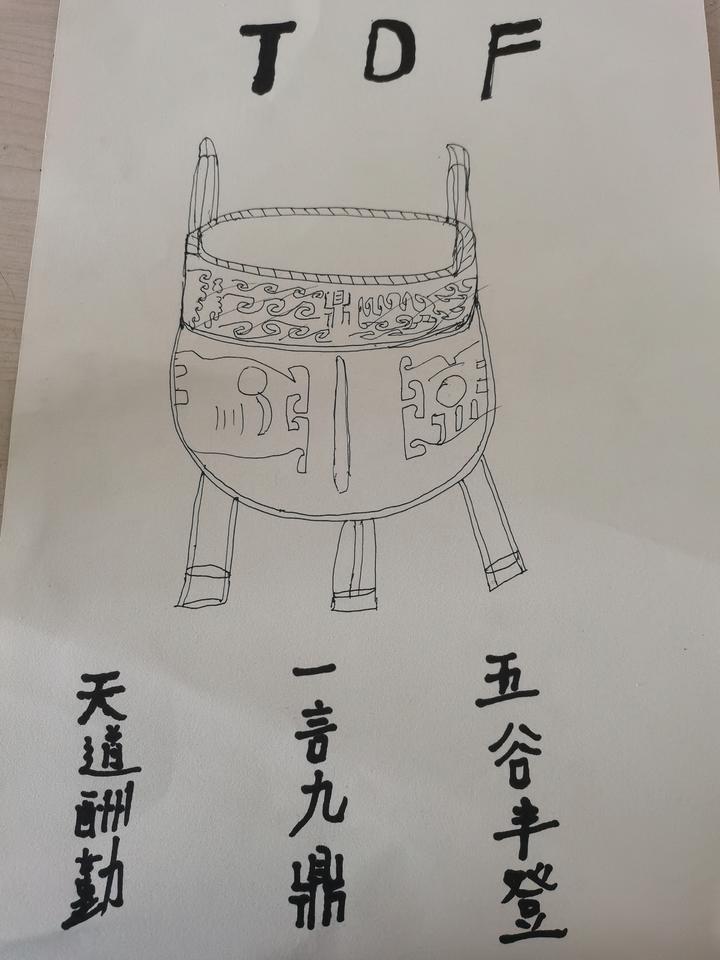 TDF
鼎
天道酬勤
一言九鼎
五谷丰登